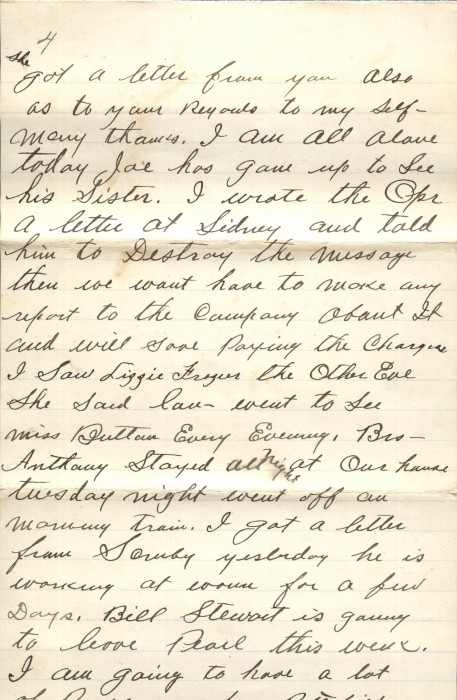 4
she
got a letter from you also
as to your Regards to my self-
Many thanks. I am all alone
today Joe has gone up to See
his Sister. I wrote the Opr
a letter at Sidney and told
him to Destroy the message
then we wont have to make any
report to the Company about It
and will save Paying the Charges
I Saw Lizzie Frazier the Other Eve
She Said Lou- went to See
miss Button Every Evening. Bro-
Anthony Stayed all night at Our house
tuesday night went off on
morning train. I got a letter
from yesterday he is
working at for a few
Days. Bill Stewart is going
to leave Pearl this week.
I am going to have a lot
of